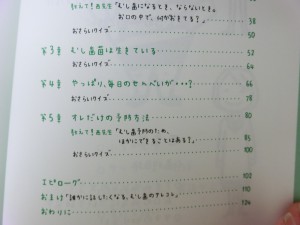 教えて!西先生「むし歯になるとき、ならないとき。
お口の中で、何がおきてる?」 38
おさらいクイズ 50
第3章 むし歯菌は生きている 52
おさらいクイズ 64
第4章 やっぱり、毎日のせんべいが・・・? 66
おさらいクイズ 78
第5章 オレだけの予防方法 80
教えて!西先生「むし歯予防のため、
ほかにできることはある?」 85
おさらいクイズ 100
エピローグ 102
おまけ「誰かに話したくなる、むし歯のアレコレ」 110
おわりに 124